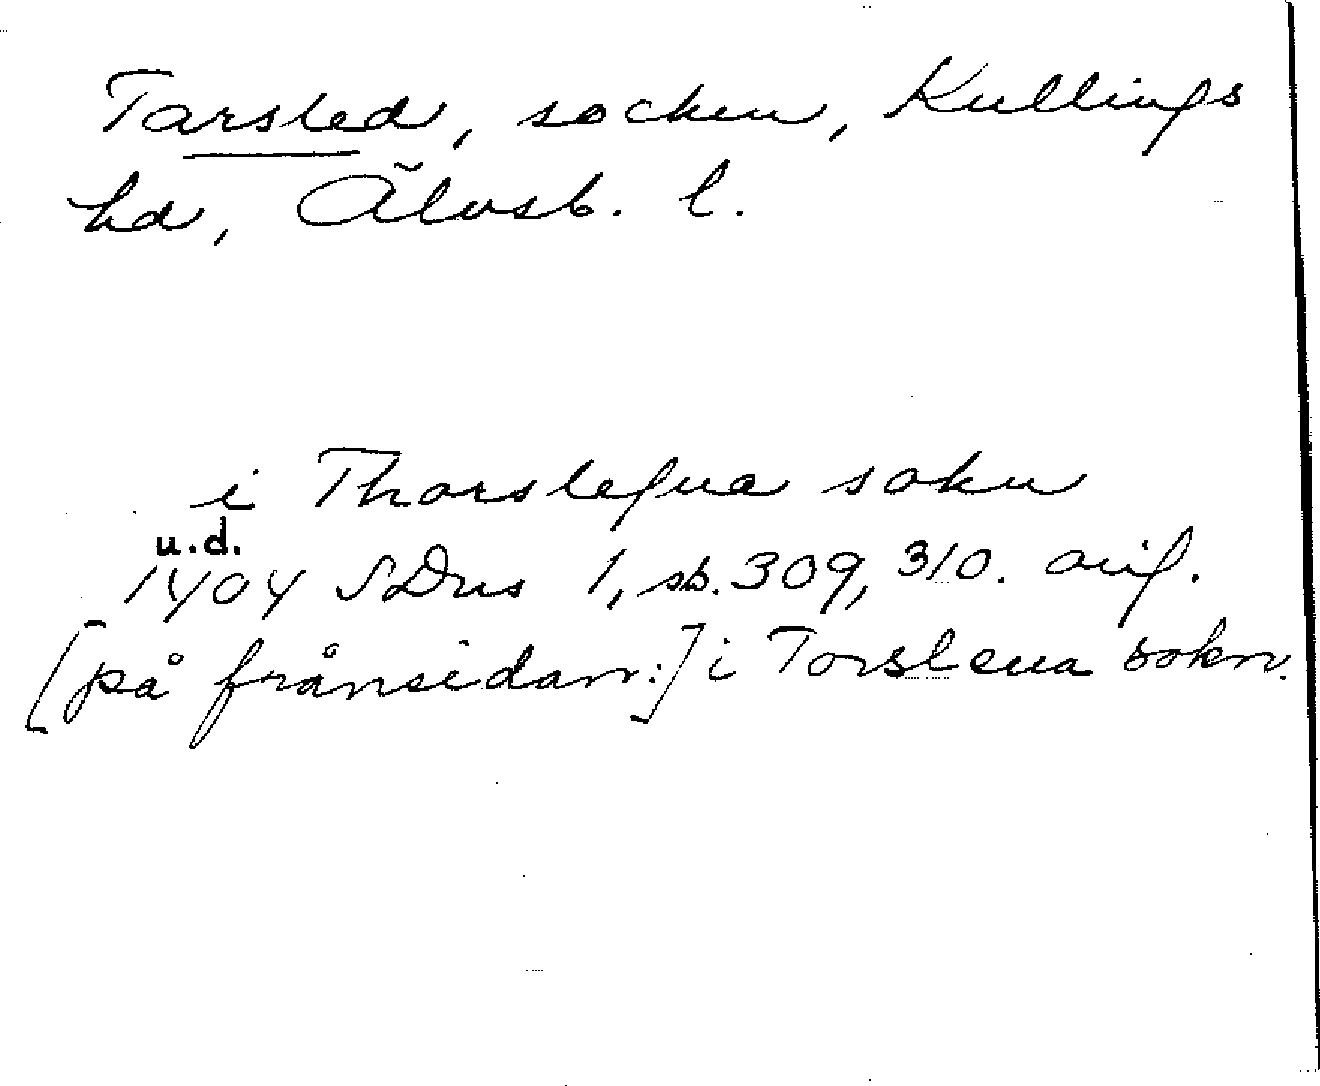 Tarsled, socken, Kullings
hd, Älvsb. l.
i Thorslefua sokn
u.d.
1404 SDns 1, sb. 309, 310. avif.
[på frånsidan:] i Torslena sokn.